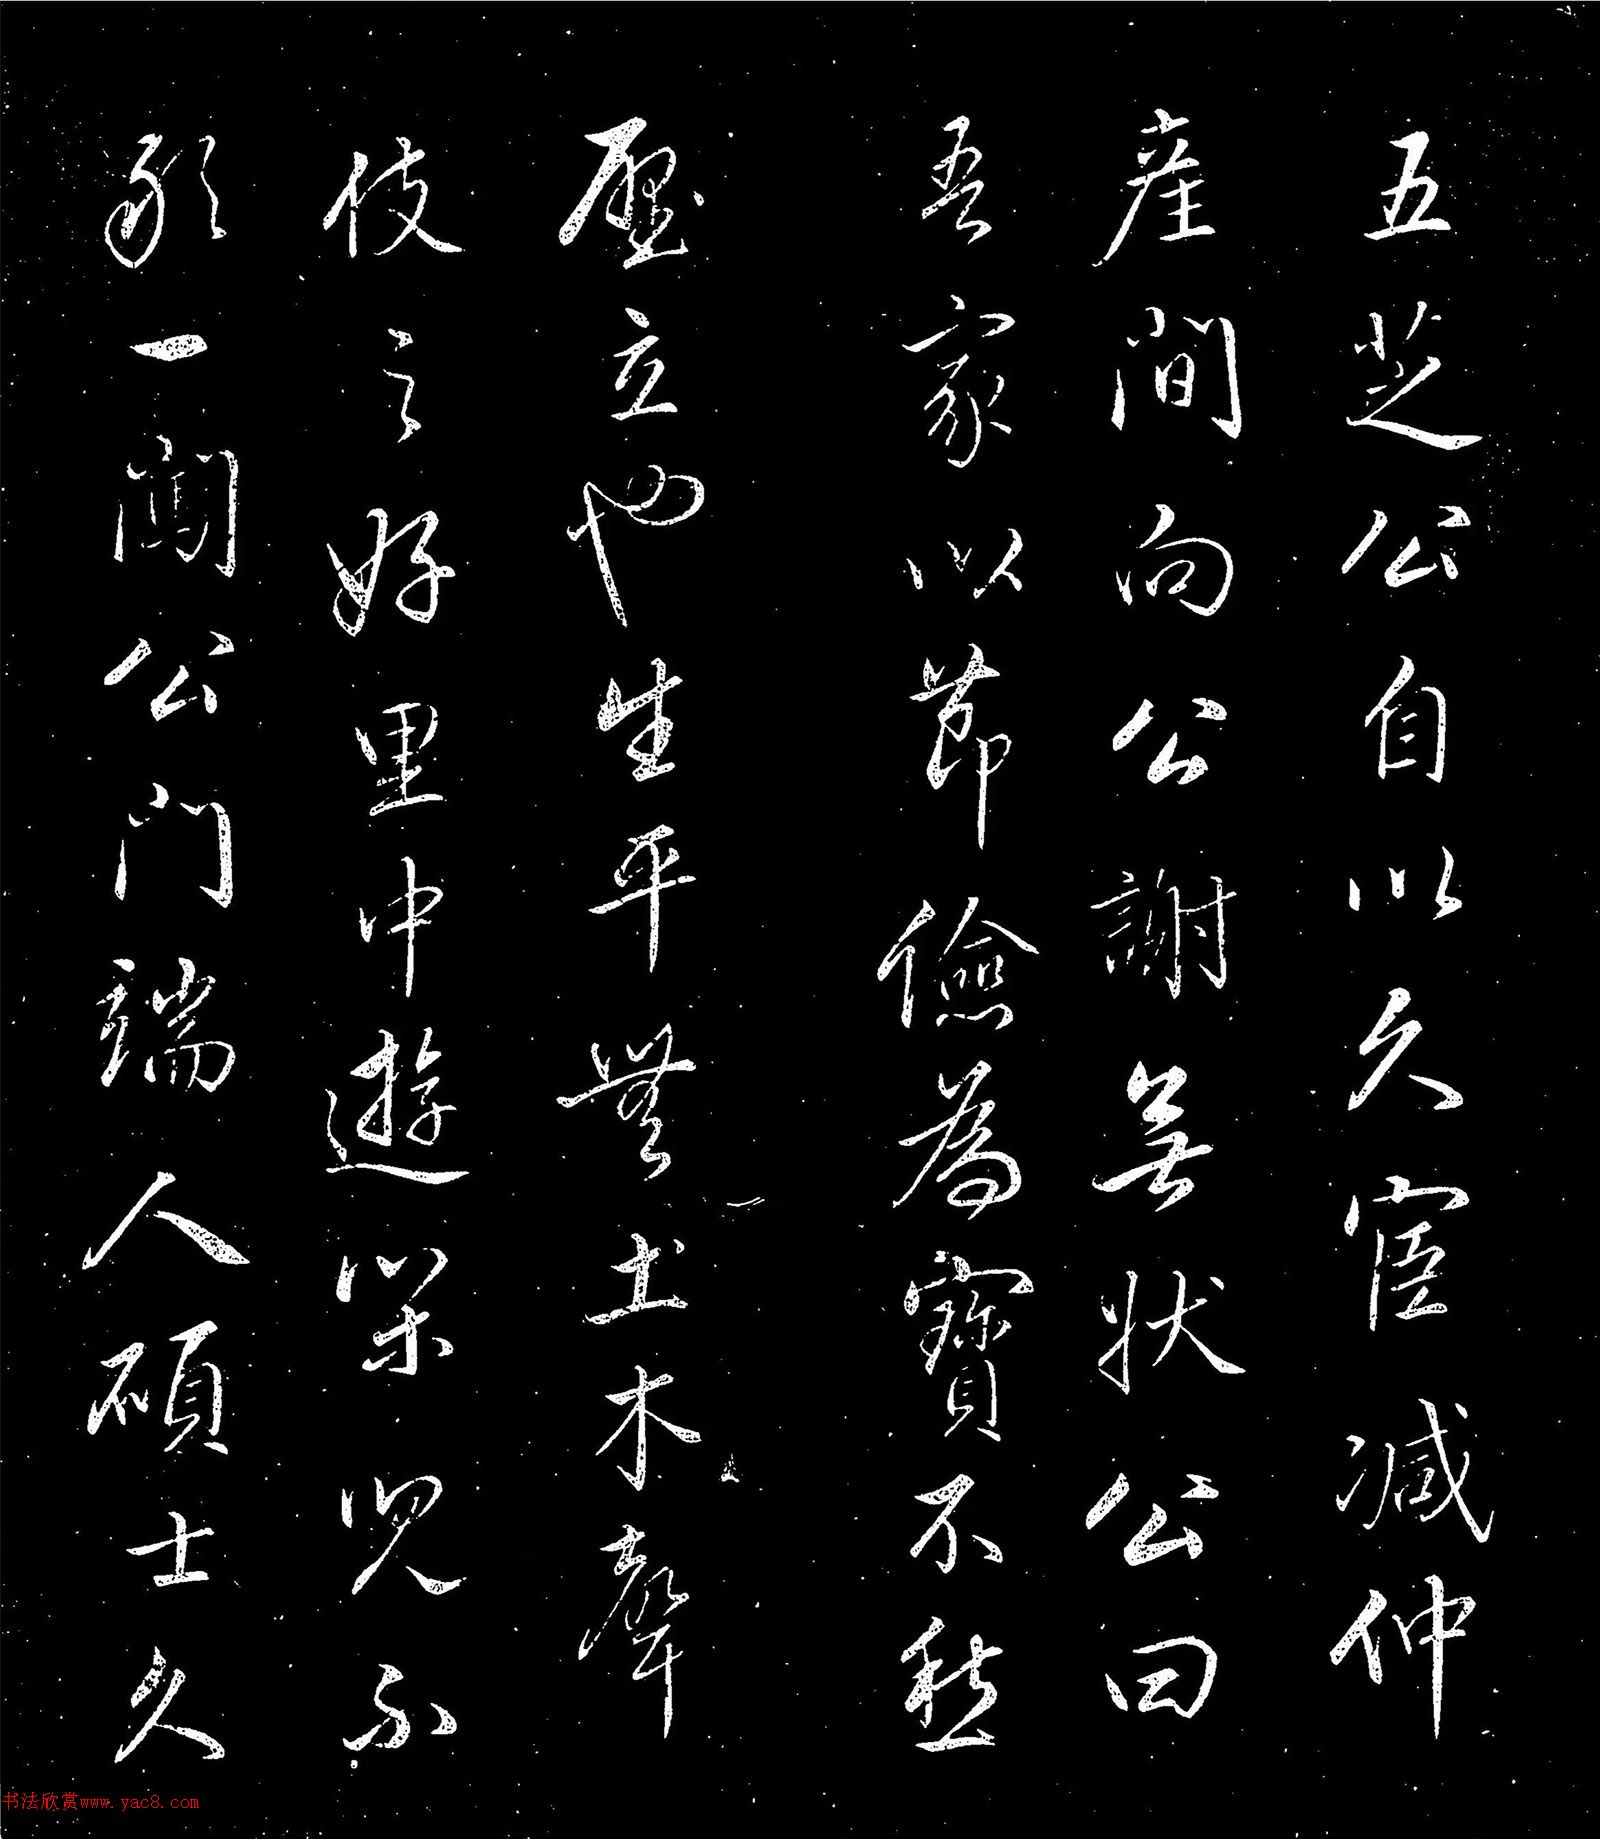 五芝公自以久宦减仲
產間向公謝無狀公曰
吾家以節儉為寶不愁
壁立也生平無土木聲
伎之好里中遊兒不
敢一闚公門端人碩士久
书法欣赏www.yac8.com